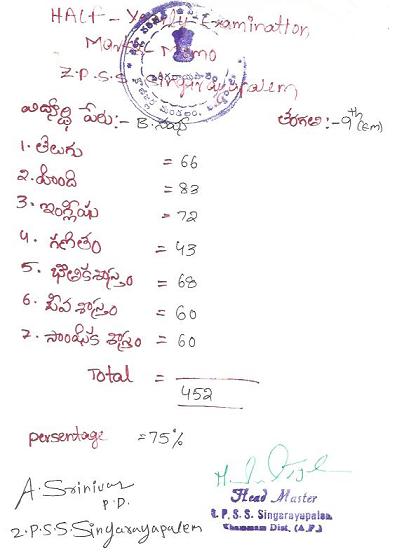 HALF - Yearly - Examination
Marks Memo
Z.P.S.S. Singarayapalem
విద్యార్థి పేరు:- B. తరగతి:- 9th (EM)
1. తెలుగు = 66
2. హింది = 83
3. ఇంగ్లీషు = 72
4. గణితం = 43
5. భౌతికశాస్త్రం = 68
6. జీవ శాస్త్రం = 60
7. సాంఘిక శాస్త్రం = 60
Total =
452
persentage = 75%
A. Srinivas
P.D.
Z.P.S.S. Singarayapalem
Head Master
Z.P.S.S. Singarayapalem
Khammam Dist. (A.P.)